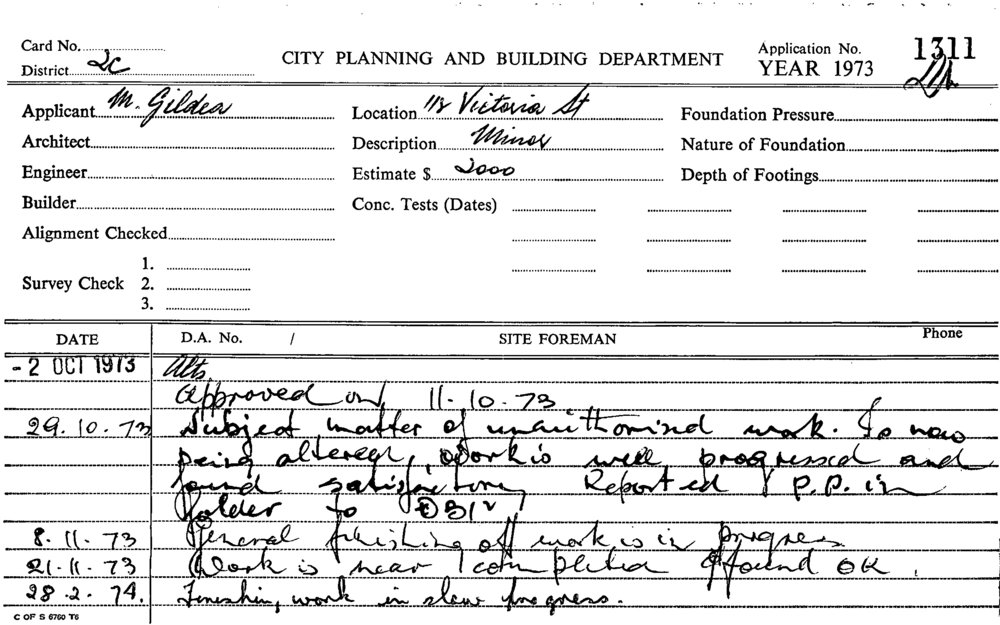 Card No.
District 2c
CITY PLANNING AND BUILDING DEPARTMENT
Application No. 1311
YEAR 1973
Applicant M. Gildea
Location 112 Victoria St
Foundation Pressure
Architect
Description Minor
Nature of Foundation
Engineer
Estimate $ 2000
Depth of Footings
Builder
Conc. Tests (Dates)
Alignment Checked
Survey Check 1.
2.
3.
DATE D.A. No. / SITE FOREMAN Phone
-2 OCT 1973 Alts
Approved on 11.10.73
29.10.73 Subject matter of unauthorised work. Is now
being altered, work is well progressed and
found satisfactory Reported P.P. in
folder to
8.11.73 General finishing off work is in progress
21.11.73 Work is near completed & found OK.
28.2.74. Finishing work in slow progress.
C OF S 6760 T6